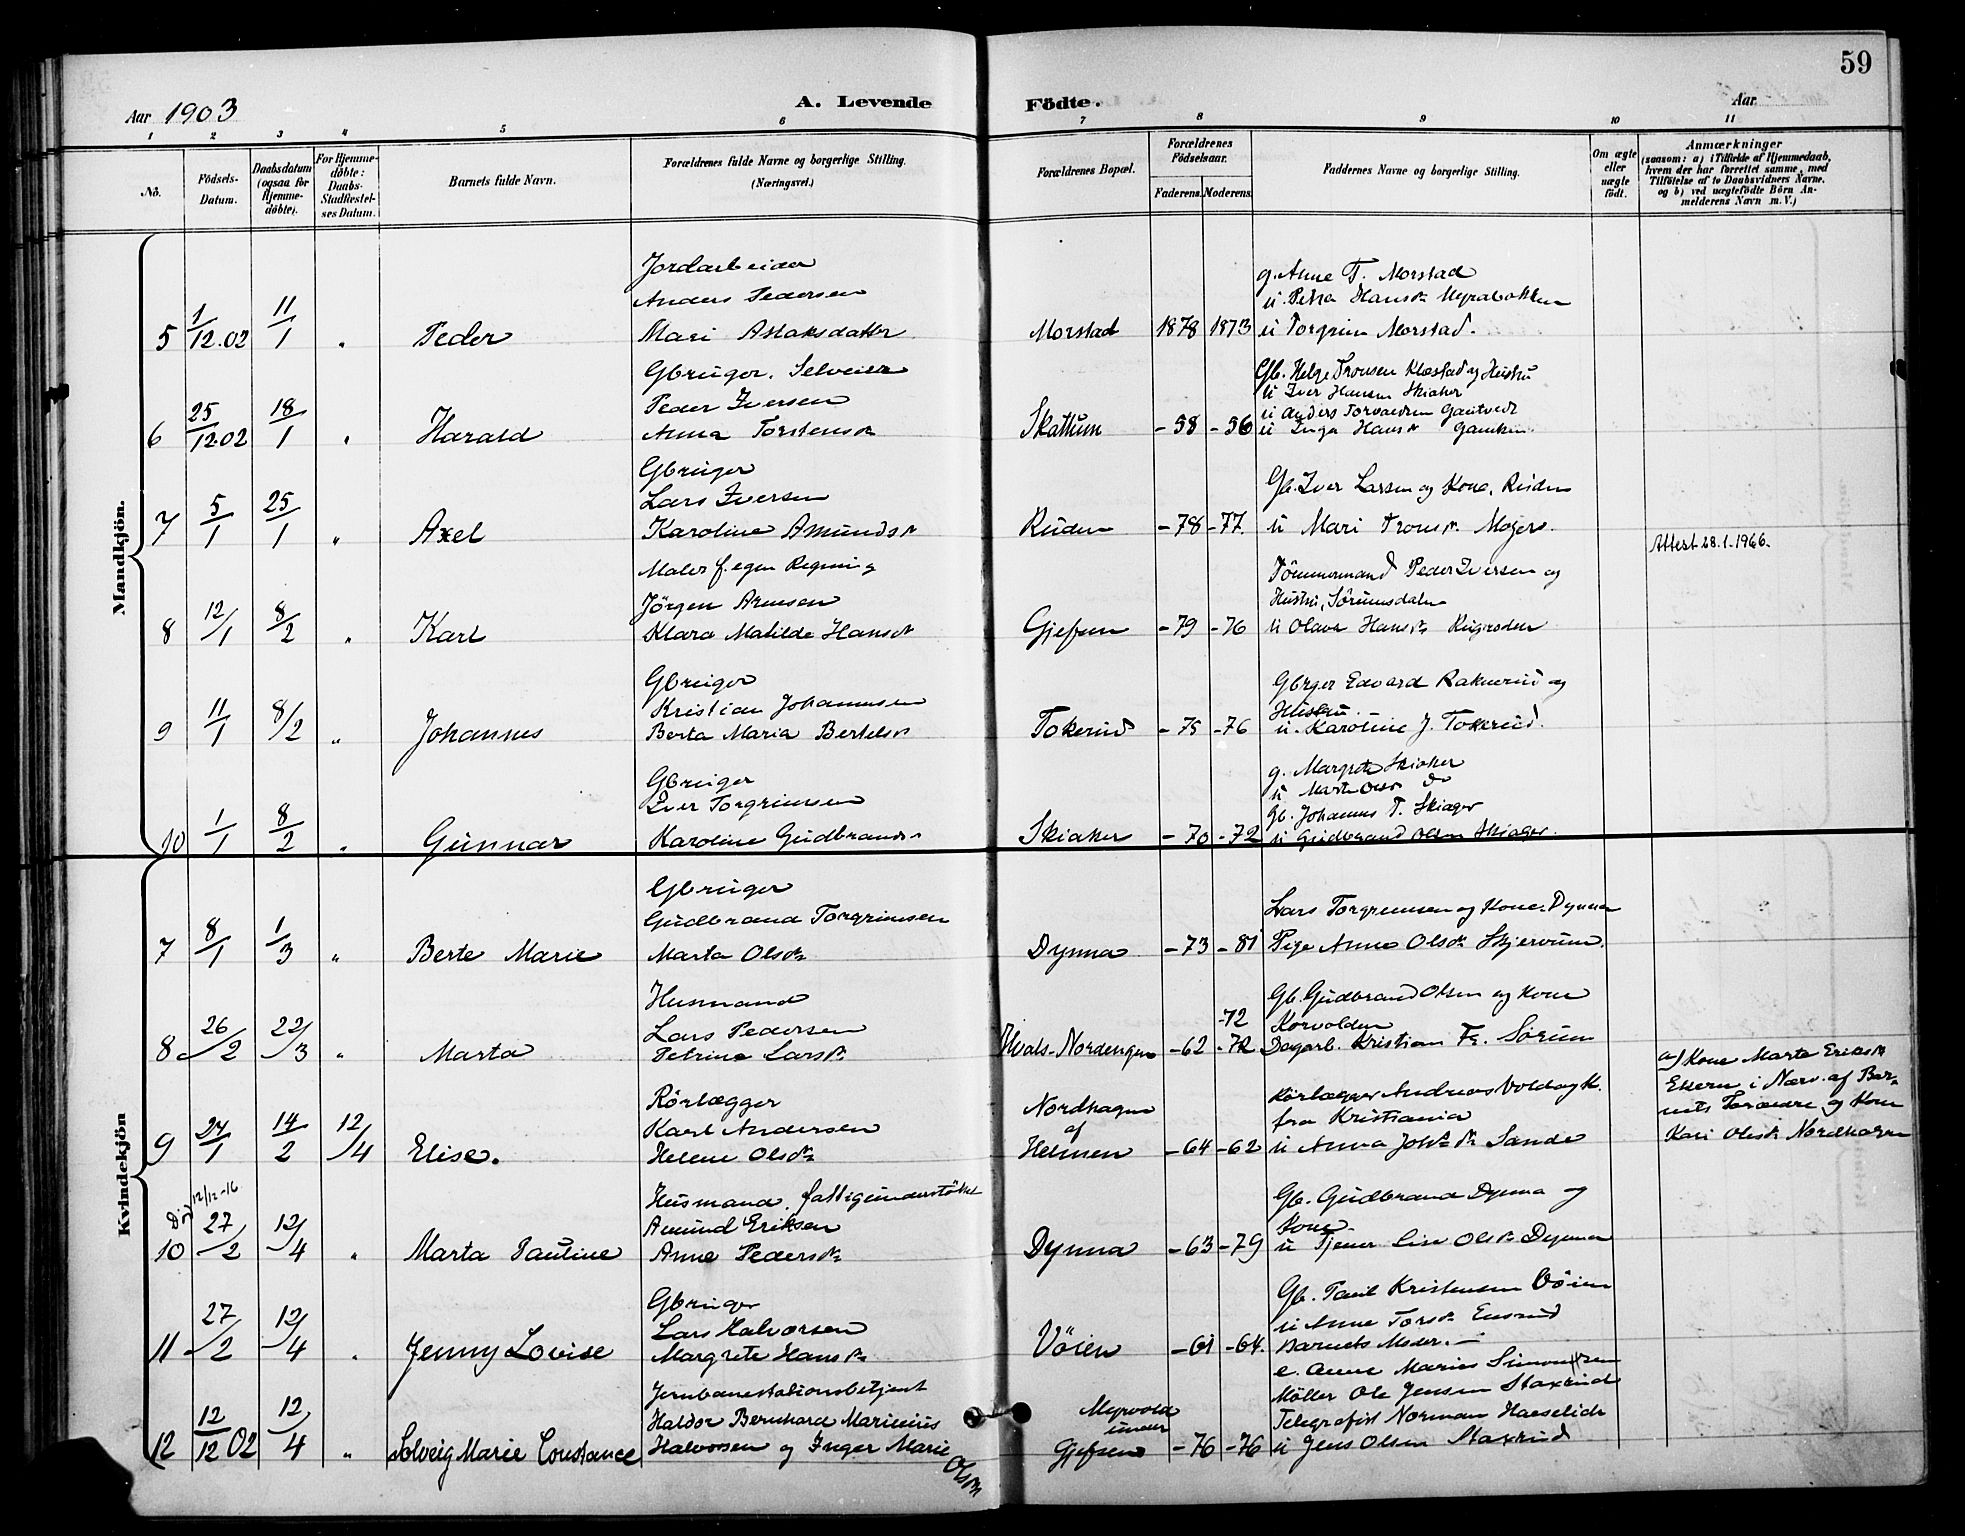 59
Aar 1903
A. Levende
Födte.
Aar
1 2 3 4 5 6 7 8 9 10 11
No.
Födsels-
Datum.
Daabsdatum
(ogsaa for
Hjemme-
döbte).
For Hjemme-
döbte:
Daabs-
Stadfæstel-
ses Datum.
Barnets fulde Navn.
Forældrenes fulde Navne og borgerlige Stilling.
(Næringsvei.)
Forældrenes Bopæl.
Forældrenes
Födselsaar.
Faderens. Moderens.
Faddernes Navne og borgerlige Stilling.
Om ægte
eller
uægte
födt.
Anmærkninger
(saasom: a) i Tilfælde af Hjemmedaab,
hvem der har forrettet samme, med
Tilföielse af to Daabsvidners Navne.
og b) ved uægtefödte Börn An-
melderens Navn m. V.)
Mandkjön.
Jordarbeider
Anders Pedersen
5 1/12.02 11/1 " Peder Mari Aslaksdatter Morstad 1878 1873
g. Anne T. Morstad
ü. Petra Hansdr
ü Torgrim Morstad.
Gbruger. Selveier
Peder Iversen
6 25/12.02 18/1 " Harald Anna Torstensdr Skattum -58 -56
Gb. Helge Tronsen Klæstad og Hustru
ü Iver Hansen Skiaker
ü Anders Torvaldsen
ü Inga Hansdr
Gbruger
Lars Iversen
7 5/1 25/1 " Axel Karoline Amundsdr Ruden -78 -77.
Gb. Iver Larsen og Kone, Ruden
ü Mari Tronsdr Moger.
Attest 28.1.1966.
Maler f. egen Regning
Jörgen Arnesen
8 12/1 8/2 " Karl Klara Matilde Hansdr Gjefsen -79 -76
Tömmermand Peder Iversen og
Hustru, Sörumsdalen
ü Olava Hansdr
Gbruger
Kristian Johannesen
9 11/1 8/2 " Johannes Berta Maria Bertelsdr Tokerud -75 -76
Gbrger Edvard Raknerud og
Hustru.
ü. Karoline J. Tokerud.
Gbruger
Iver Torgrimsen
10 1/1 8/2 " Gunnar Karoline Gudbrandsdr Skiaker -70 -72
g. Margrete Skiaker
ü Marte Olsdr do
Gb. Johannes T. Skiager
ü Gudbrand Olsen Skiager.
Kvindekjön
Gbruger
Gudbrand Torgrimsen
7 8/1 1/3 " Berte Marie Marta Olsdr Dynna -73 -81
Lars Torgrimsen og Kone Dynna
Pige Anne Olsdr Skjervum.
Husmand
Lars Pedersen
8 26/2 22/3 " Marta Petrine Larsdr Hvals-Nordengen -62 -72
-72
Gb. Gudbrand Olsen og Kone
Korvolden
Dagarb. Kristian Fr. Sörum
Rörlægger
Karl Andersen
9 24/1 14/2 12/4 Elise. Helene Olsdr
Nordhagen
af
Helmen -64 -62
Rörlægger Andreas Vold og K.
fra Kristiania
ü Anna Johsdr Sande
a) Kone Marte Eriksdr
Elken i Nærv. af Bar-
nets Forældre og Kone
Kari Olesdr Nordhagen
Död 12/12-16
Husmand, fattigunderstöttet
Amund Eriksen
10 27/2 12/4 " Marta Pauline Anne Pedersdr Dynna -63 -79
Gb. Gudbrand Dynna og
Kone.
ü Tjener Lise Olsdr Dynna
Gbruger
Lars Halvorsen
11 27/2 12/4 " Jenny Lovise Margrete Hansdr Vöien -61 -64.
Gb. Paul Kristensen Vöien
ü Anne Torsdr Ensrud
Barnets Moder.
e. Anne Maries Simonsen
Jernbanestationsbetjent
Haldor Bernhard Marinius
12 12/12 02 12/4 " Solveig Marie Constance Halvorsen og Inger Marie Olsdr
Myrvold
under
Gjefsen -76 -76
Möller Ole Jensen Staxrud
Telegrafist Norman Haeselich
ü Jens Olsen Staxrud